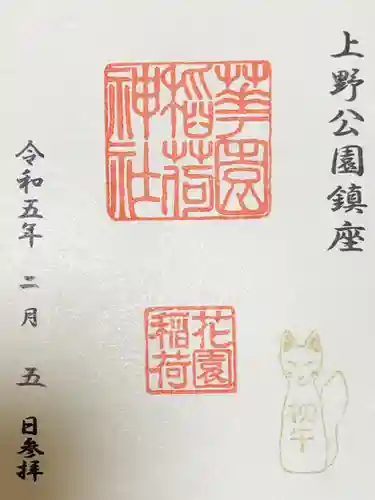 上野公園鎮座
華園
稲荷
神社
花園
稲荷
初午
令和五年二月五日参拝